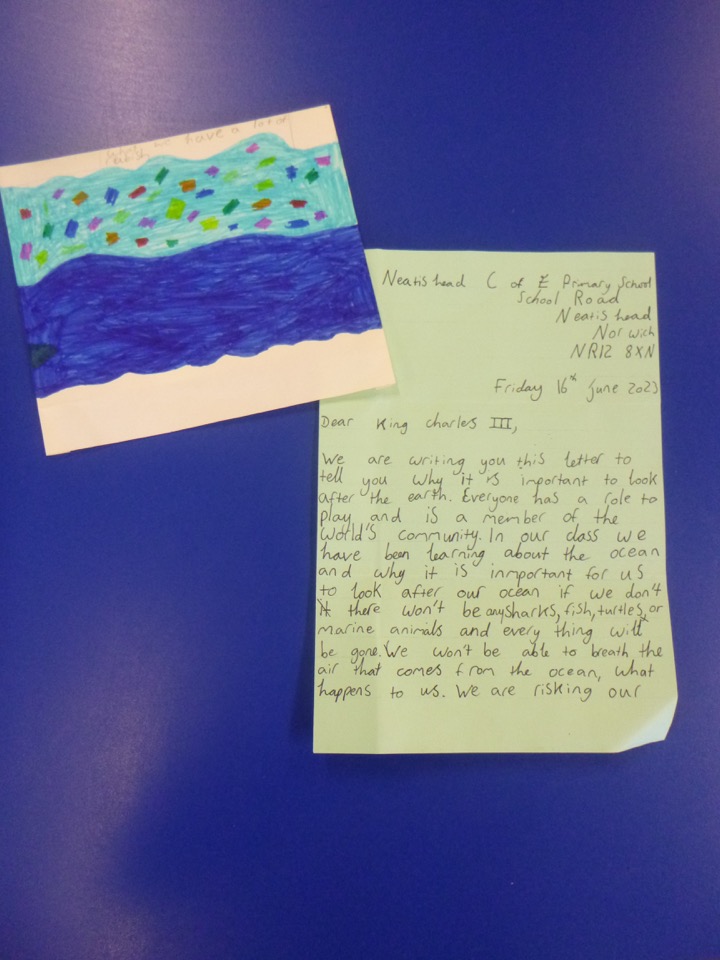 why we have a lot of
rubbish
Neatishead C of E Primary School
School Road
Neatishead
Norwich
NR12 8XN
Friday 16th June 2023
Dear King Charles III,
We are writing you this letter to
tell you why it is important to look
after the earth. Everyone has a role to
play and is a member of the
World's community. In our class we
have been learning about the ocean
and why it is inmportant for us
to look after our ocean if we don't
there won't be any sharks, fish, turtles, or
marine animals and every thing will
be gone. We won't be able to breath the
air that comes from the ocean, what
happens to us. We are risking our